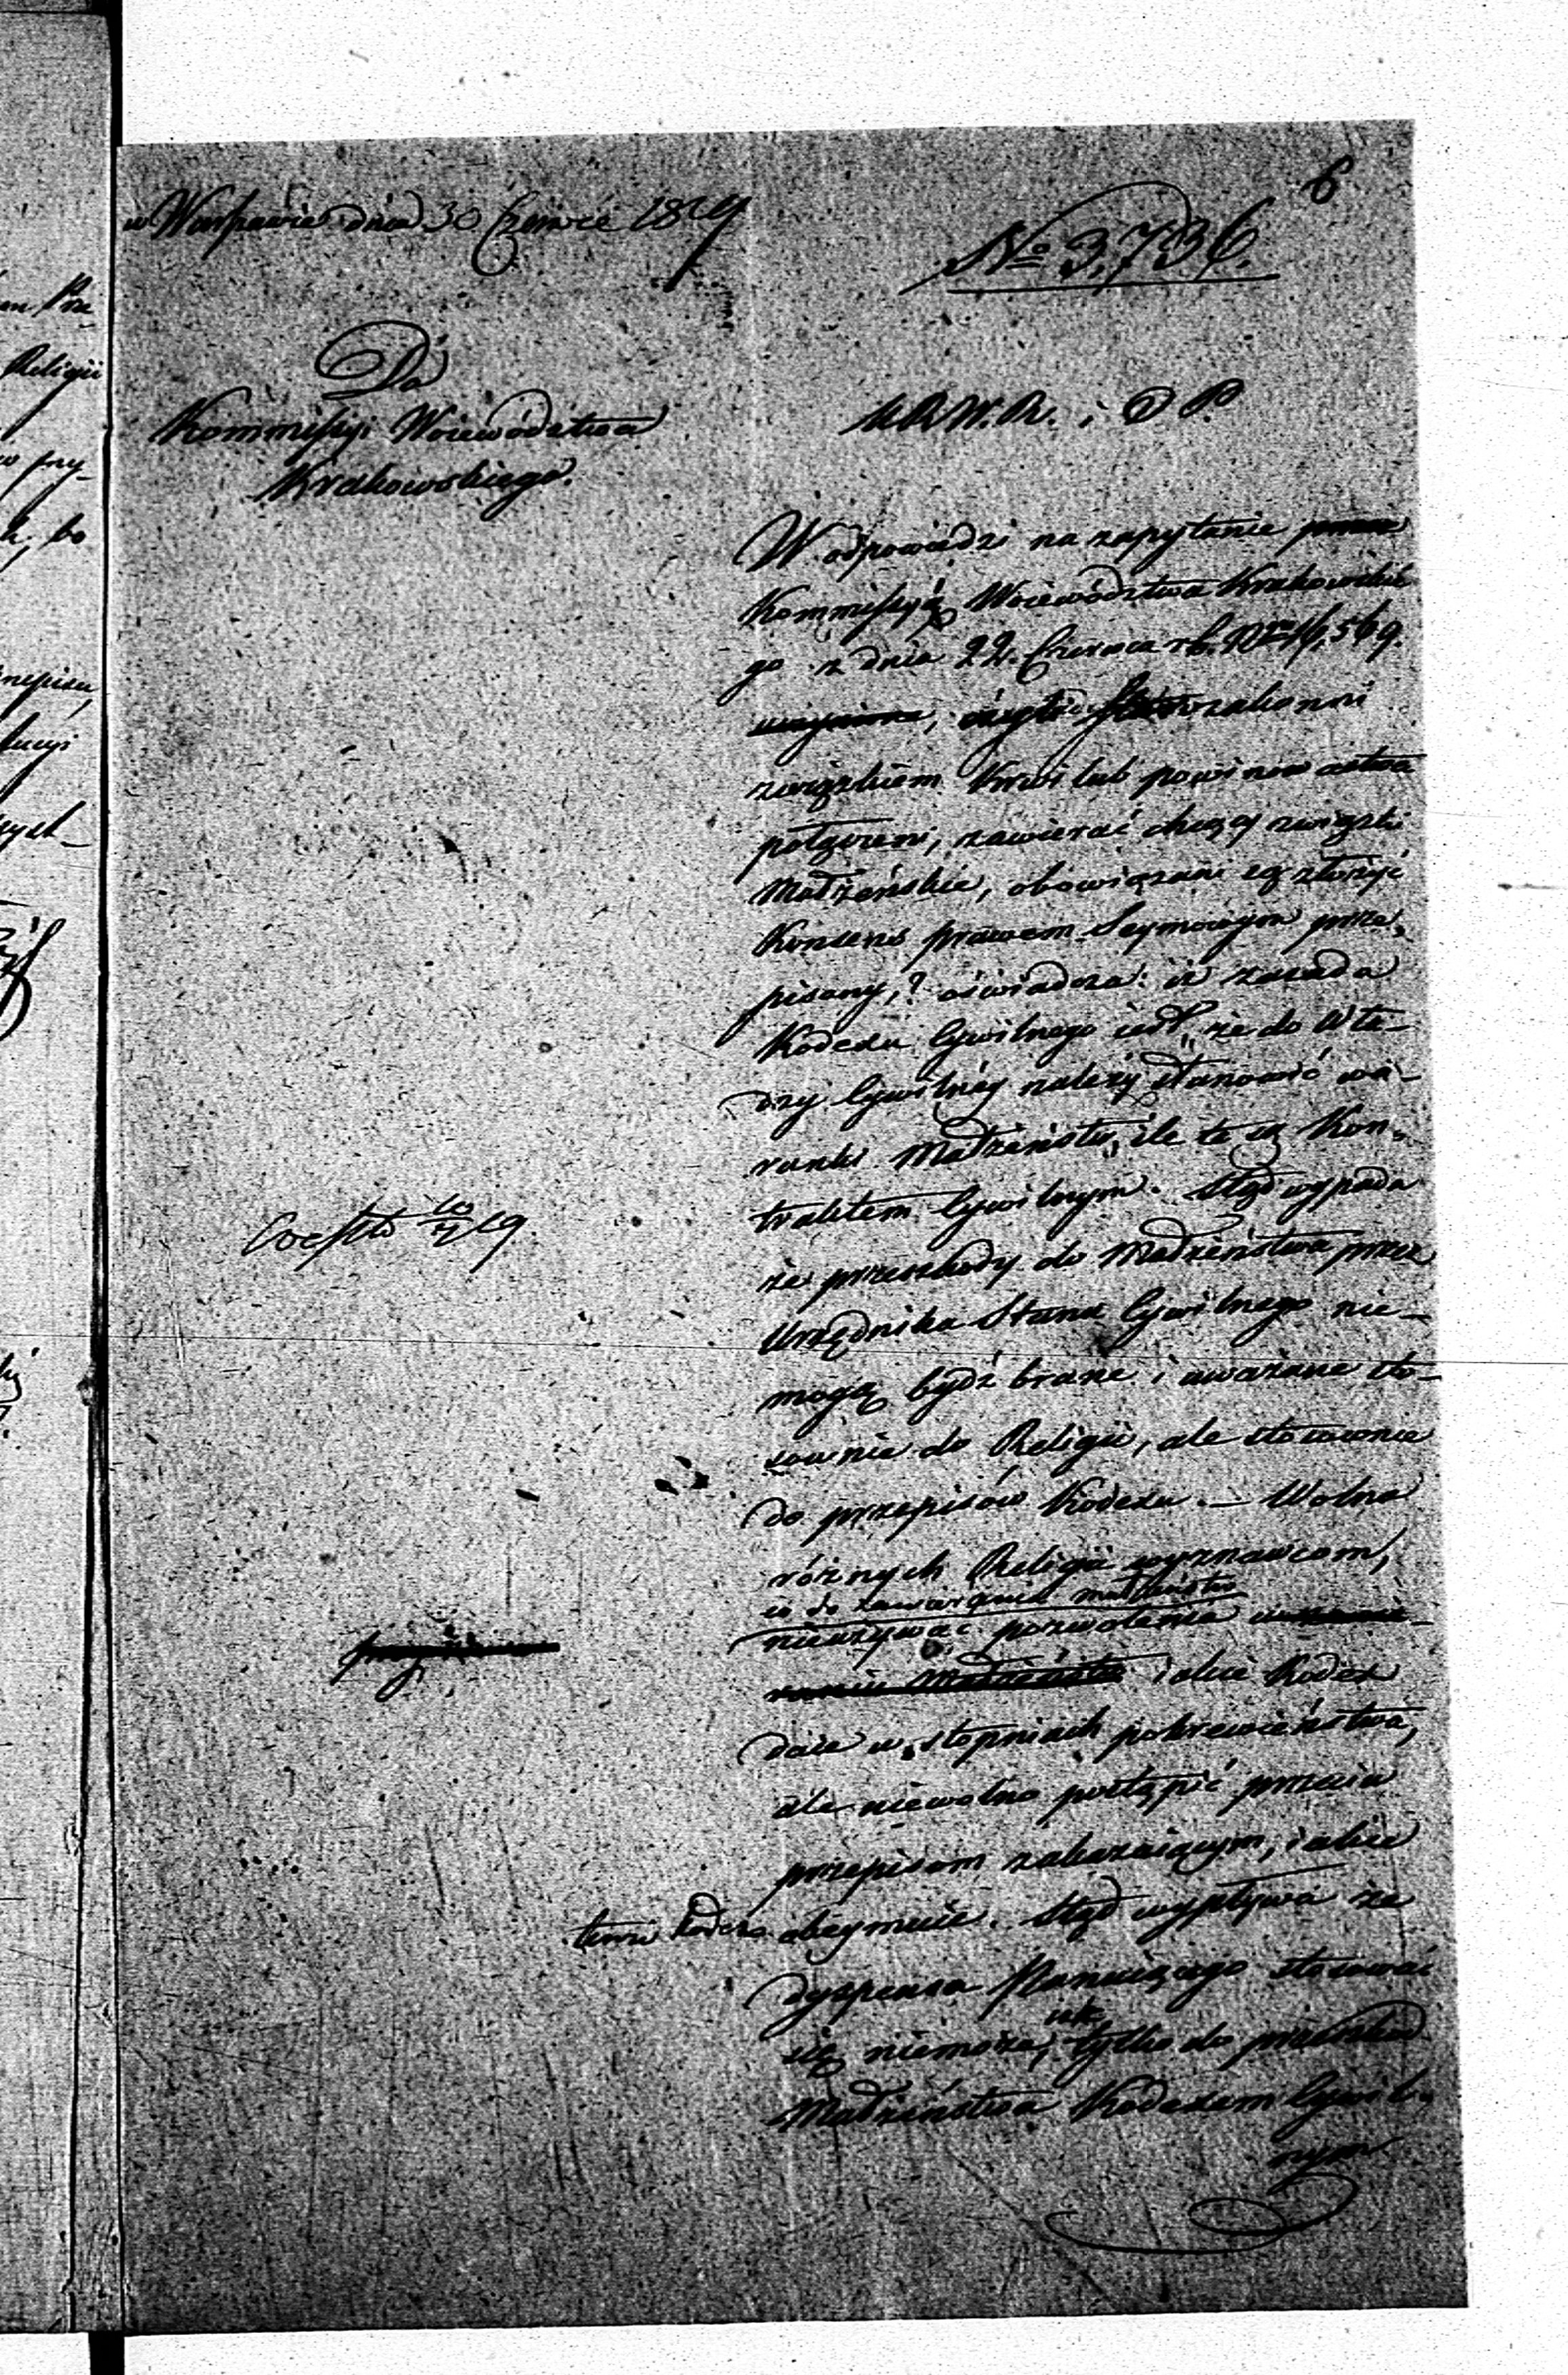 6
w Warszawie dnia 30 Czerwca 1819
No 3,736.
Do
Kommissyi Woiewództwa
Krakowskiego.
K R W. R. i O P.
W odpowiedzi na zapytanie
Kommissyi Woiewództwa Krakowskie
go z dnia 22. Czerwca rb. Nro 16,569.
czyli Starozakonni
związkiem Krwi lub powinowactwa
połączeni, zawierać chcący związki
Małżeńskie, obowiązani są złożyć
Konsens prawem Seymowym prze,
pisany,? oświadcza: iż zasada
Kodexu Cywilnego iest, że do Wła-
dzy Cywilnéy należy stanowić wa-
runki Małżeństw, ile te są Kon,
traktem Cywilnym. Ztąd wypada
że przeszkody do Małżeństwa przez
Urzędnika Stanu Cywilnego nie-
mogą bydź brane i uważane sto-
sownie do Religii, ale stosownie
do przepisów Kodexu. — Wolno
różnych Religii wyznawcom,
co do zawierania małżeństw
nieużywać pozwolenia
iakie Kodex
daie w stopniach pokrewieństwa,
ale niewolno postąpić przeciw
przepisom zakazuiącym, iakie
tenże Kodex obeymuie. Ztąd wypływa że
dyspensa Panuiącego stosować
się niemoże, iak tylko do przeszkód
Małżeństwa Kodexem Cywil,
nym